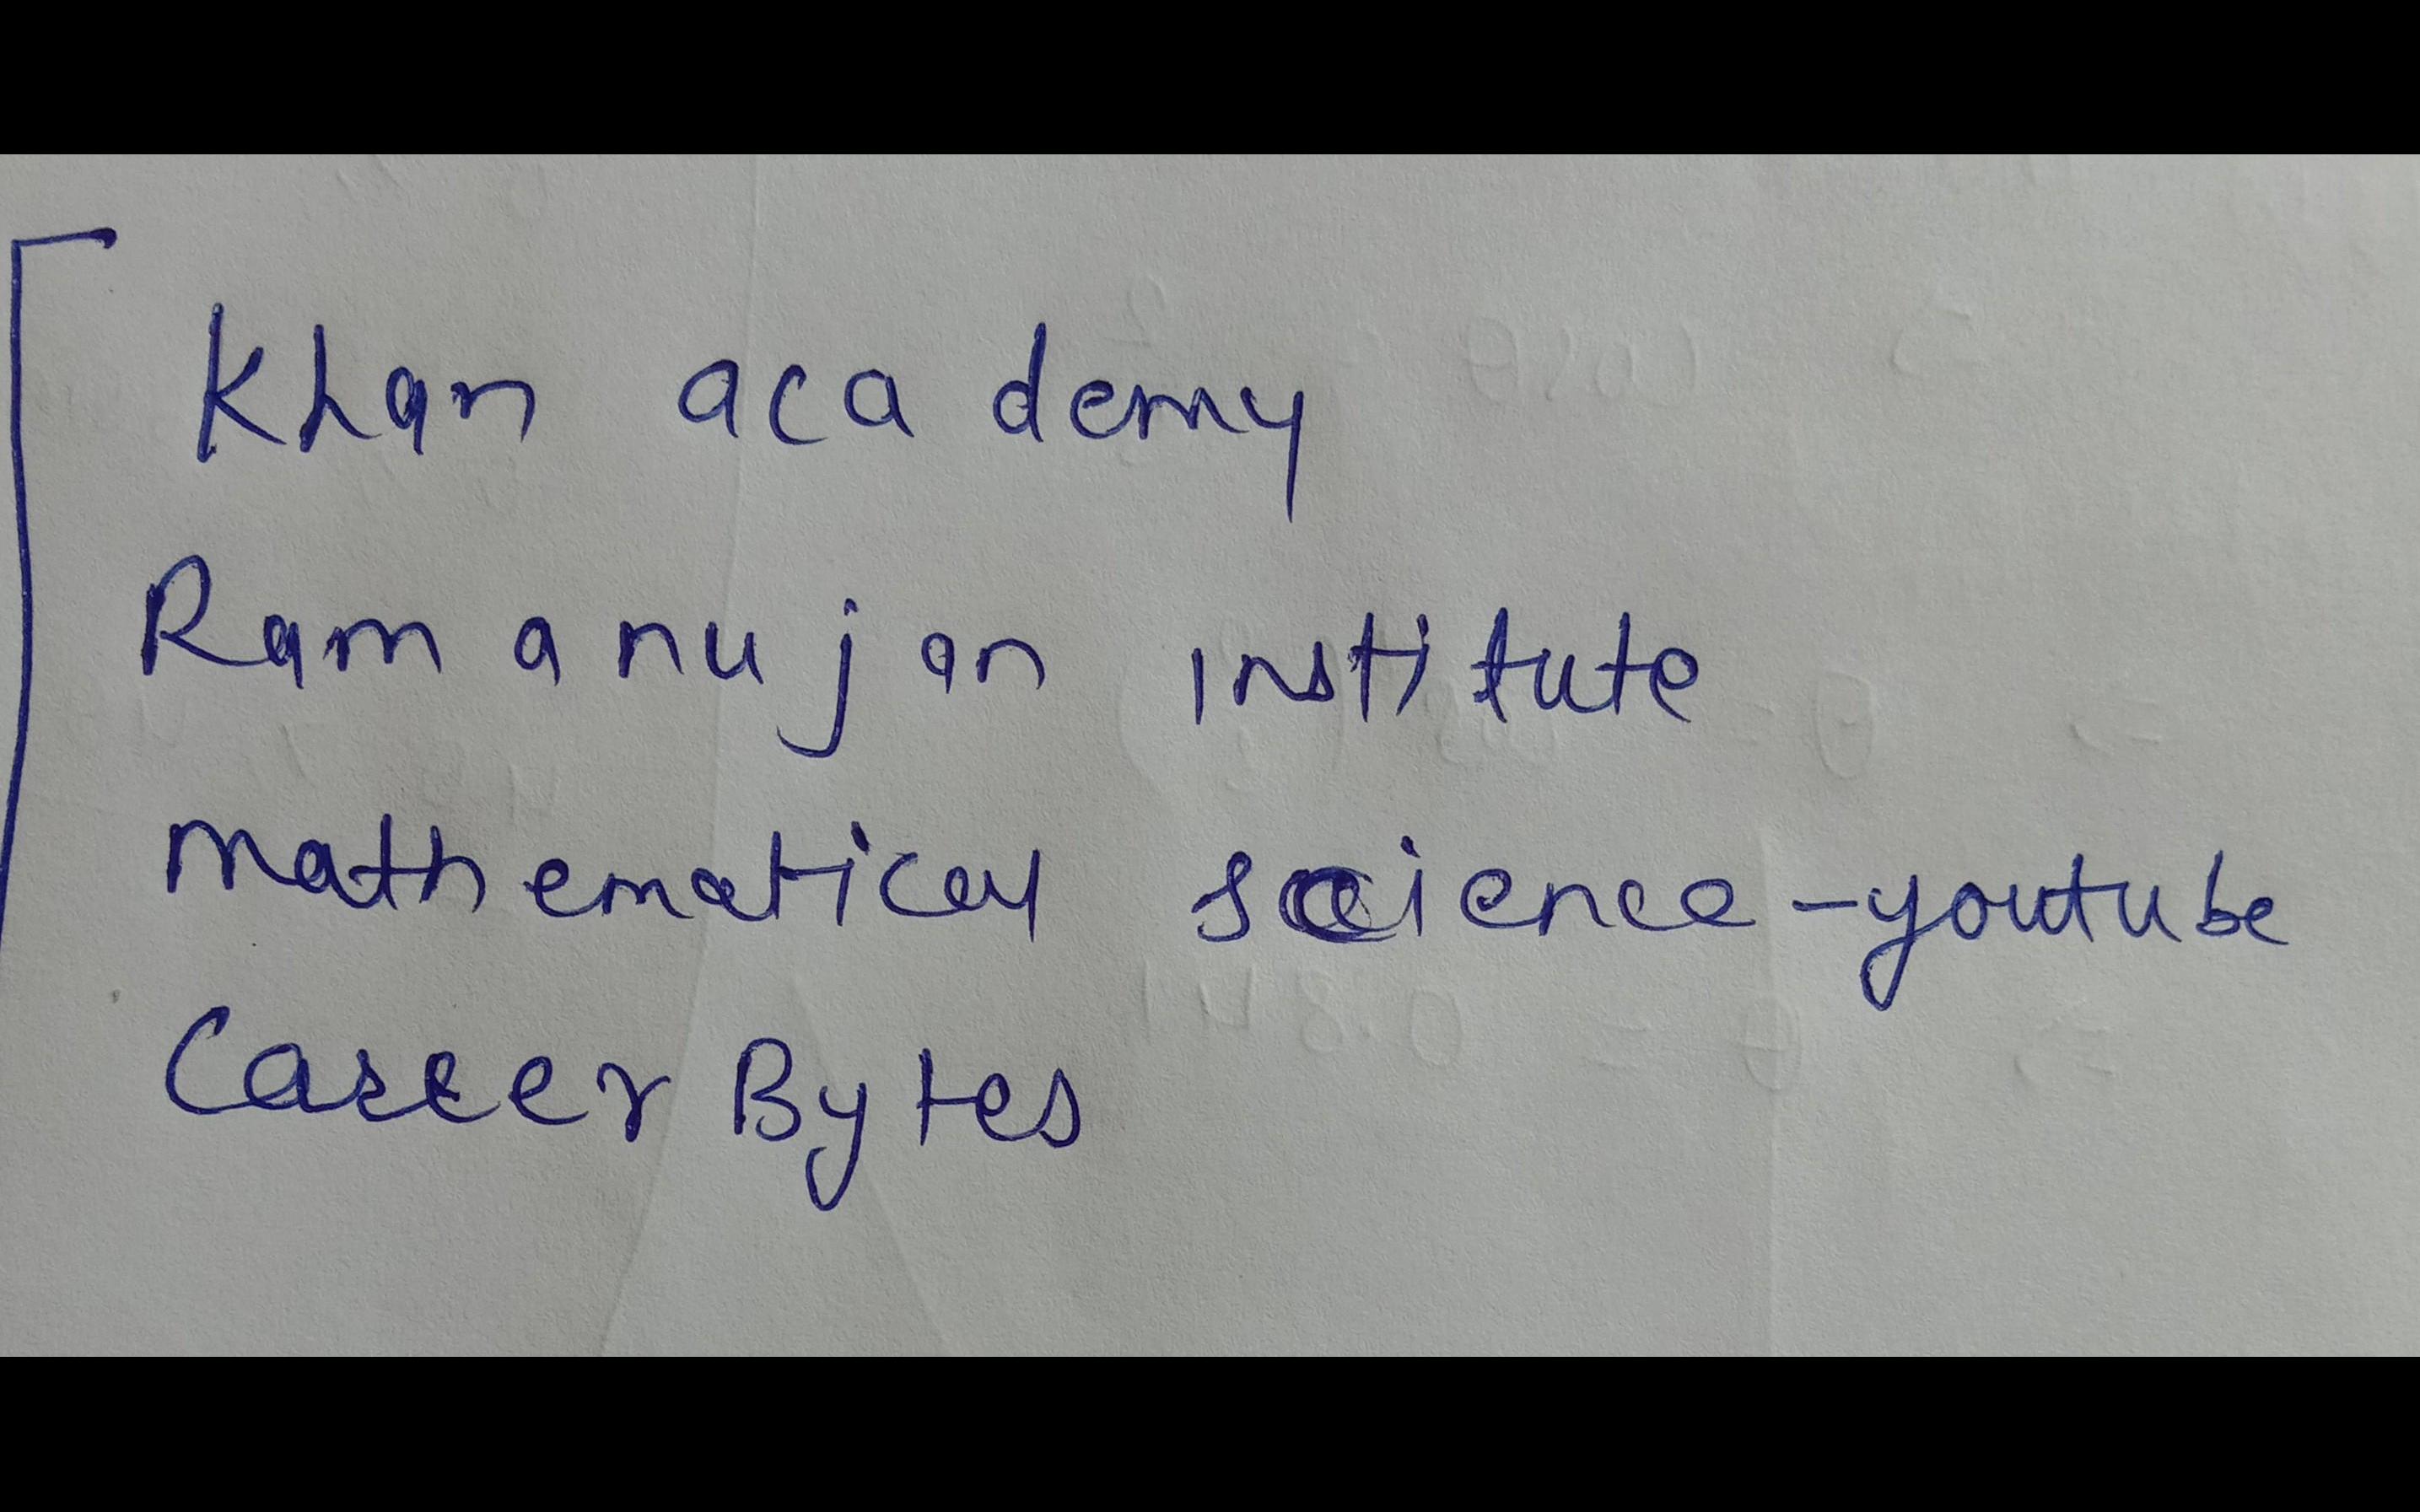 Khan academy
Ramanujan institute
mathematical science - youtube
Career Bytes